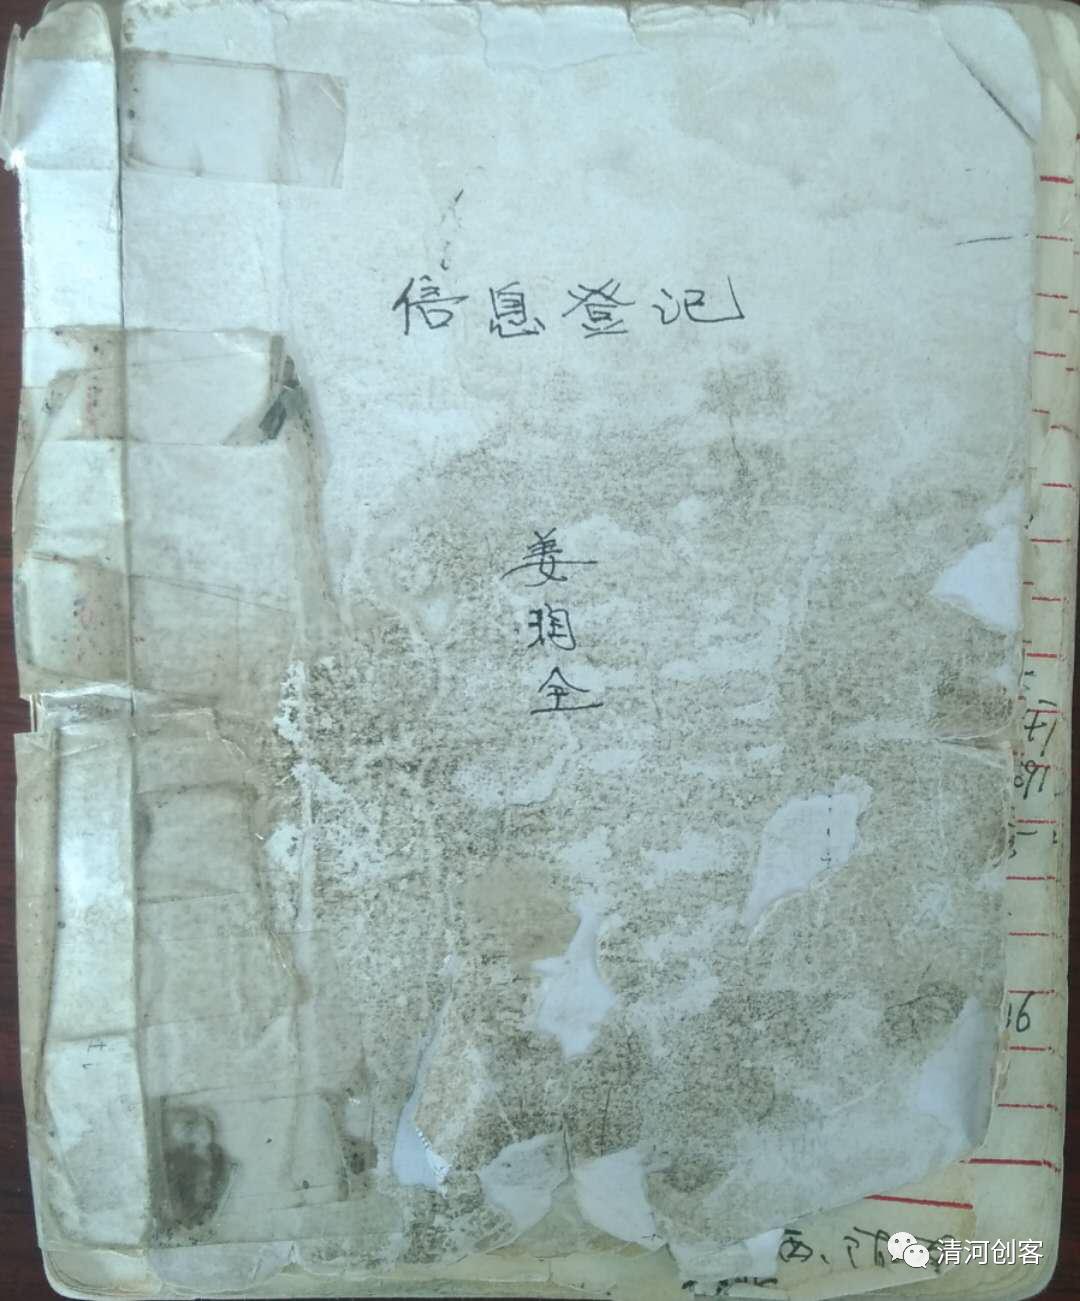 信息登记
姜润全
16
清河创客